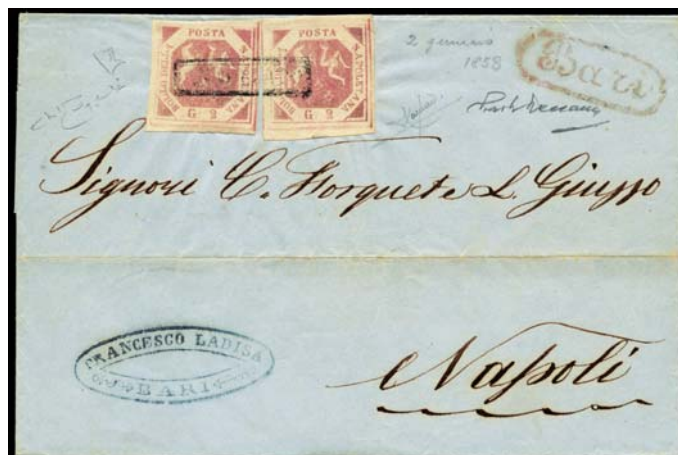 POSTA NAPOLETANA
BOLLO DELLA
G 2
POSTA NAPOLETANA
BOLLO DELLA
G 2
2 gennaio
1858
Bari
Signori C. Forquet e L. Giusso
FRANCESCO LADISA
BARI
Napoli